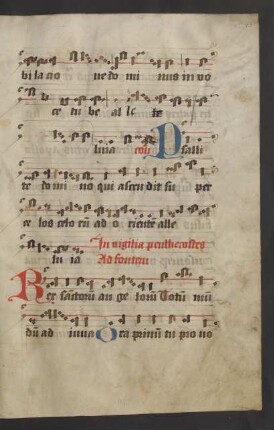 bi la cio ne do mi nus in vo
ce tu be al le
luia co͞i Psalli
te do mi no qui ascen dit su per
ce los celo rū ad o rientē alle
lu ia In vigilia penthecostes
Ad fontem
Rex sanctorū an ge lorū Totū mū
dū ad iuua Ora primū tu pro no